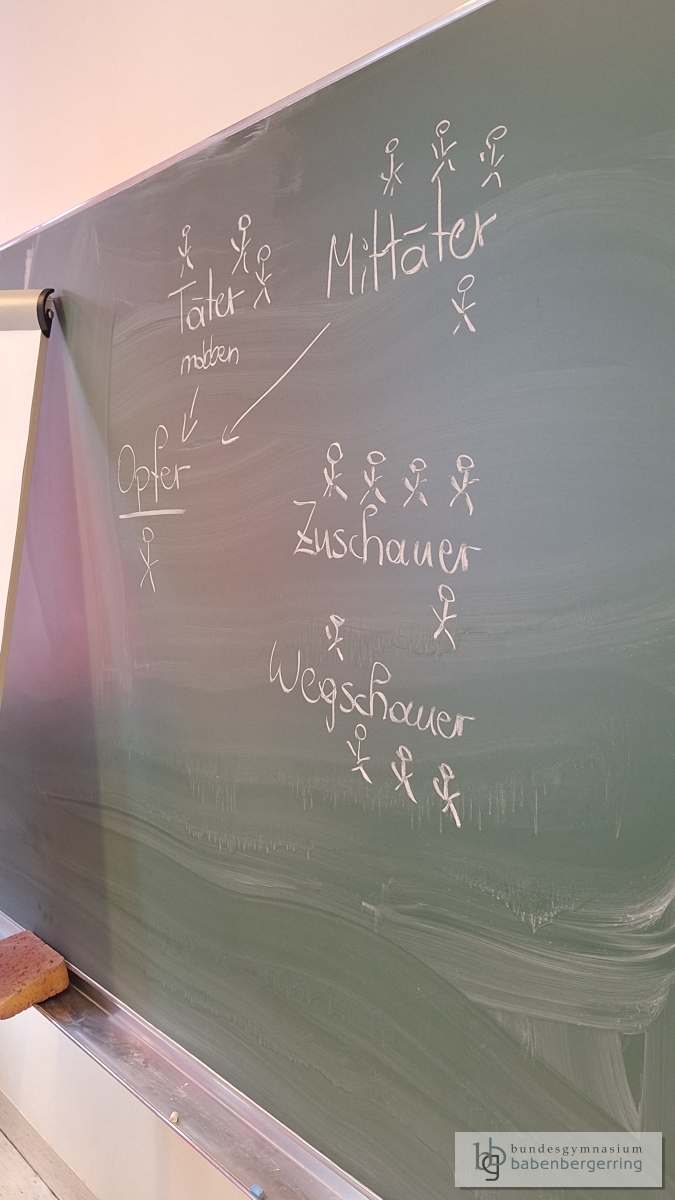 Mittäter
Täter
mobben
Opfer
Zuschauer
Wegschauer
bundesgymnasium
babenbergerring